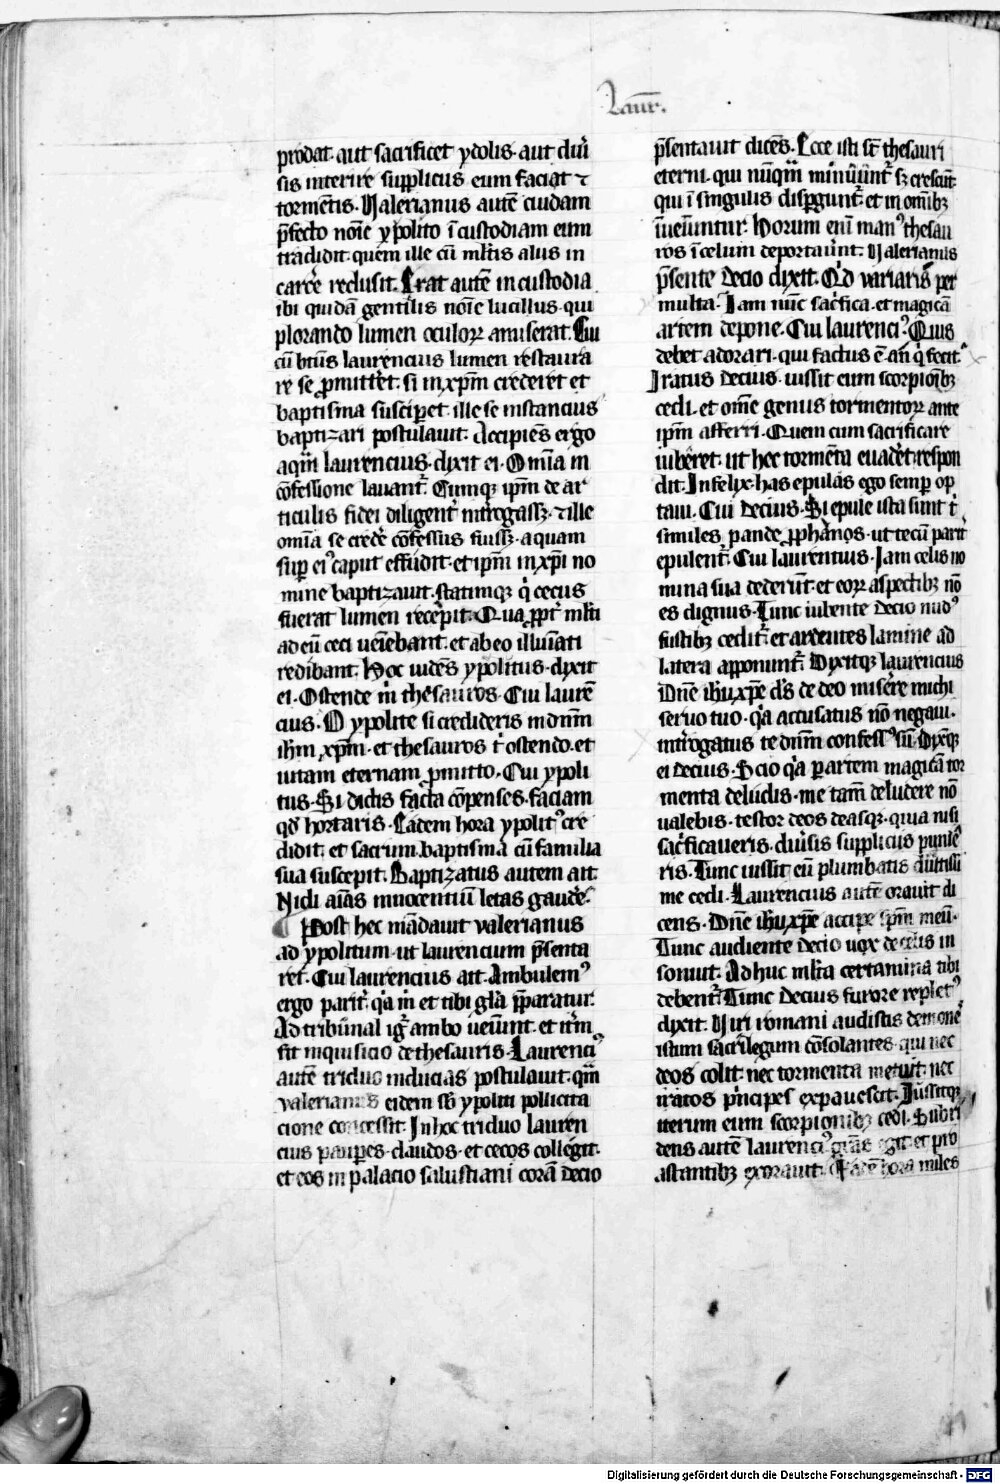 Laur̄.
prodat· aut sacrificet ydolis· aut diu̾
sis interire suppliciis eum faciat ⁊
tormētis· Valerianus autē cuidam
p̄fecto noīe ypolito ī custodiam eum
tradidit· quem ille cū ml̾tis aliis in
carcē reclusit. Erat autē in custodia
ibi quidā gentilis noīe lucillus· qui
plorando lumen oculoꝝ amiserat. Cui
cū btūs laurencius lumen restaura
re se ꝓmitt̾et· si in xp̄m crederet et
baptisma susciꝑet· ille se instancius
baptizari postulauit. Accipiēs ergo
aqm̄ laurencius· dixit ei· Omīa in
cōfessione lauant̾. Cumqꝫ ip̄m de ar
ticulis fidei diligent̾ int̾rogassꝫ· ⁊ ille
omīa se cred̾e cōfessus fuissꝫ· aquam
suꝑ eiꝰ caput effudit· et ip̄m in xp̄i no
mine baptizauit· statimqꝫ q̇ cecus
fuerat lumen recepit· Qua ꝓpt̾ ml̾ti
ad eū ceci ueīebant· et ab eo illuīati
redibant. Hoc uidēs ypolitus· dixit
ei· Ostende m̄ thesauros· Cui laurē
cius. O ypolite si credideris in dnm̄
ihm̄ xp̄m· et thesauros t̄ ostendo· et
uitam eternam ꝓmitto· Cui ypoli
tus· Si dictis facta cōpenses· faciam
qd̄ hortaris. Eadem hora ypolitꝰ cre
didit· et sacrum baptisma cū familia
sua suscepit. Baptizatus autem ait
Vidi aīas innocentiū letas gaud̾e.
Post hec mādauit valerianus
ad ypolitum· ut laurencium p̄senta
ret· Cui laurencius ait· Ambulemꝰ
ergo parit̾· qa m̄ et tibi gl̄a p̄paratur.
Ad tribunal ig̾ ambo ueīunt· et it̾m
fit inquisicio de thesauris· Laurenciꝰ
autē triduo inducias postulauit· qm̄
valerianus eidem sb̄ ypoliti pollicita
cione concessit· In hoc triduo lauren
cius pauꝑes· claudos· et cecos collegit·
et eos in palacio salustiani corā decio
p̄sentauit dicēs. Ecce isti st̄ thesauri
eterni· qui nūqm̄ minuūnt̾ sꝫ crescūt·
qui ī singulis disꝑgunt̾· et in omībꝫ
īueīuntur. Horum enī manꝰ thesau
ros ī celum deportauīnt· Valerianus
p̄sente decio dixit· Qd̾ variaris ꝑ
multa· Iam nūc sac̾fica· et magicā
artem depone· Cui laurenciꝰ· Quis
debet adorari· qui factus ē· an q̇ fecit·
Iratus decius· iussit eum scorpionibꝫ
cedi· et om̄e genus tormentoꝝ ante
ip̄m afferri· Quem cum sacrificare
iub̾eret· ut hec tormēta euad̾et· respon
dit· Infelix· has epulas ego semꝑ op
taui. Cui decius· Si epule iste sunt t̄
similes pande ꝓphanos· ut tecū parit̾
epulent̾· Cui laurentius· Iam celis no
mina sua dederūt· et eoꝝ aspectibꝫ nō
es dignus· Tunc iubente decio nudꝰ
fustibꝫ cedit̾· et ardentes lamine ad
latera apponunt̾· Dixitqꝫ laurencius
Dn̄e ihū xp̄e ds̄ de deo miser̾e michi
seruo tuo· qa accusatus nō negaui·
int̾rogatus te dnm̄ confessꝰ sū· Dixitqꝫ
ei decius· Scio qa ꝑ artem magicā tor
menta deludis· me tam̄ deludere nō
ualebis· testor deos deasqꝫ· quia nisi
sac̾ficaueris· diu̾sis suppliciis punie
ris. Tunc iussit eū plumbatis diutissi
me cedi· Laurencius autē orauit di
cens· Dn̄e ihū xp̄e accipe spm̄ meū·
Tunc audiente decio uox de celis in
sonuit· Adhuc ml̾ta certamina tibi
debent̾· Tunc decius furore repletꝰ
dixit. Viri romani audistis demonē
istum sacrilegum cōsolantes· qui nec
deos colit· nec tormenta metuit· nec
iratos p̄ncipes expauescit. Iussitqꝫ
iterum eum scorpionibꝫ cedi· Subri
dens autē laurenciꝰ grās egit· et pro
astantibꝫ exorauit· Eadē hora miles
Digitalisierung gefördert durch die Deutsche Forschungsgemeinschaft - DFG